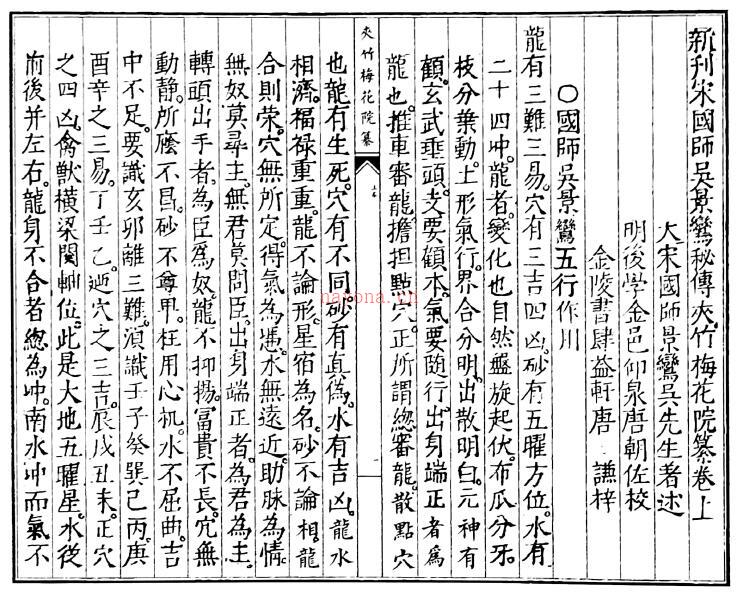 新刊宋國師吳景鸞秘傳夾竹梅花院纂卷上
大宋國師景鸞吳先生著述
明後學金邑仰泉唐朝佐校
金陵書肆益軒唐謙梓
○國師吳景鸞五行作用
龍有三難三易。穴有三吉四凶。砂有五曜方位。水有
二十四冲。龍者。變化也。自然盤旋起伏。布瓜分牙。
枝分葉動。土形氣行。界合分明。出散明白。元神有
顧。玄武垂頭。支要顧本。氣要隨行。出身端正者為
龍也。推車審龍。擔担點穴。正所謂總審龍。散點穴
夾竹梅花院纂
也。龍有生死。穴有不同。砂有真偽。水有吉凶。龍水
相濟。福祿重重。龍不論形。星宿為名。砂不論相。龍
合則荣。穴無所定。得氣為憑。水無遠近。助脉為情。
無奴莫尋主。無君莫問臣。出身端正者。為君為主。
轉頭出手者。為臣為奴。龍不抑揚。富貴不長。穴無
動靜。所應不昌。砂不尊甲。枉用心机。水不屈曲。吉
中不足。要識亥卯離三難。須識壬子癸巽己丙。庚
酉辛之三易。丁壬乙廼穴之三吉。辰戌丑未。正穴
之四凶。禽獸橫梁関軸位。此是大地五曜星。水從
前後并左右。龍身不合者。總為冲。南水冲而氣不
nayona.cn